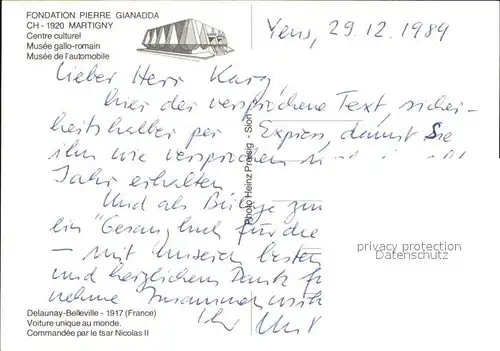 FONDATION PIERRE GIANADDA
CH - 1920 MARTIGNY
Centre culturel
Musée gallo-romain
Musée de l'automobile
Yens, 29.12.1989
Lieber Herr Karg
hier der versprochene Text, sicher-
heitshalber per Express, damit Sie
ihn wie versprochen
Jahr erhalten
Und als Beilage zur
ein "Gesangbuch für die
— mit unseren besten
und herzlichem Dank fr
nehme Zusammen
Ihr
Photo Heinz Preisig - Sion
privacy protection
Datenschutz
Delaunay-Belleville - 1917 (France)
Voiture unique au monde.
Commandée par le tsar Nicolas II